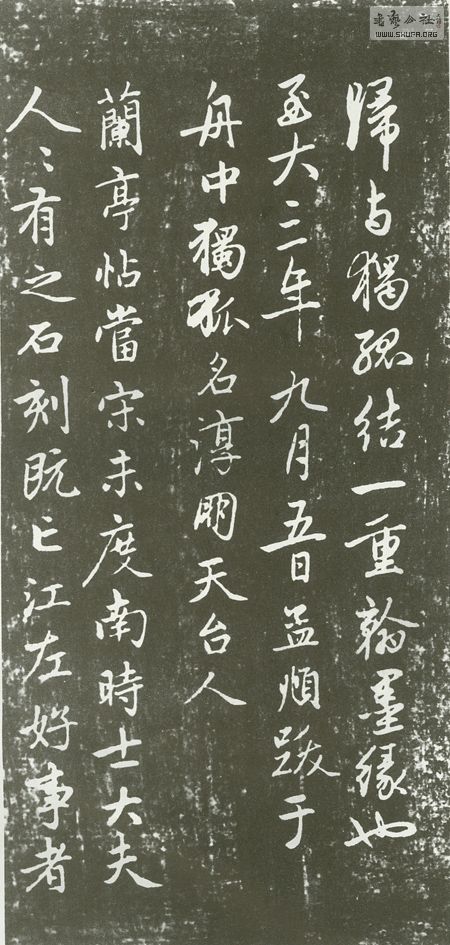 歸与獨孤結一重翰墨緣也
至大三年九月五日孟頫跋于
舟中獨孤名淳朋天台人
蘭亭帖當宋未度南時士大夫
人〻有之石刻既亡江左好事者
書藝公社
WWW.SHUFA.ORG